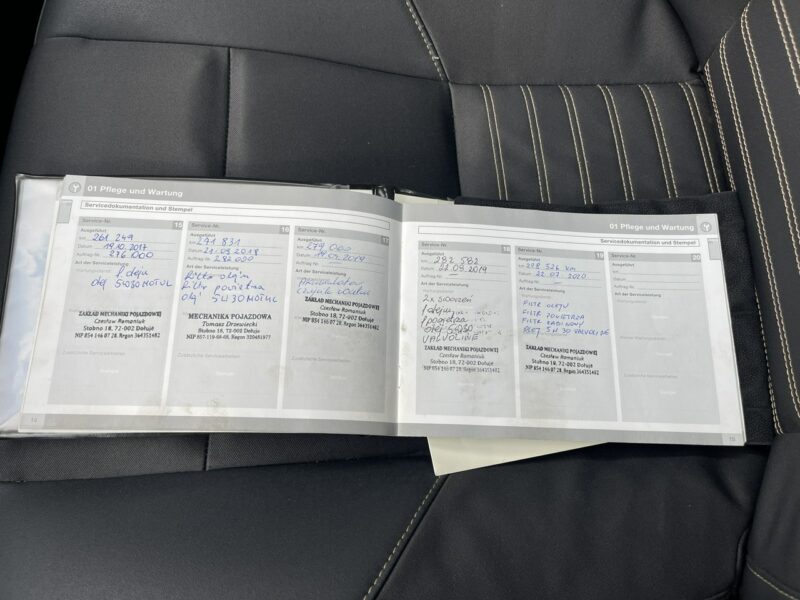 01 Pflege und Wartung
Servicedokumentation und Stempel
Service-Nr. 15
Ausgeführt
km 261 249
Datum 19.10.2017
Auftrag-Nr. 276.000
Art der Serviceleistung
f. oleju
olej 5W30 MOTUL
ZAKŁAD MECHANIKI POJAZDOWEJ
Czesław Romaniuk
Stobno 18, 72-002 Dołuje
NIP 854 146 07 28, Regon 364351482
Zusätzliche Servicearbeiten
14
Service-Nr. 16
Ausgeführt
km 271 831
Datum 21.09.2018
Auftrag-Nr. 282.000
Art der Serviceleistung
filtr powietrza
olej 5W30 MOTUL
MECHANIKA POJAZDOWA
Tomasz Drzewiecki
Stobno 18, 72-002 Dołuje
Zusätzliche Servicearbeiten
Service-Nr. 17
Ausgeführt
km 279 000
Auftrag-Nr.
Art der Serviceleistung
ZAKŁAD MECHANIKI POJAZDOWEJ
Czesław Romaniuk
Stobno 18, 72-002 Dołuje
NIP 854 146 07 28, Regon 364351482
Zusätzliche Servicearbeiten
01 Pflege und Wartung
Servicedokumentation und Stempel
Service-Nr. 18
Ausgeführt
km 282 582
Datum 22.09.2019
Auftrag-Nr.
Art der Serviceleistung
f. oleju
olej 5W30
VALVOLINE
ZAKŁAD MECHANIKI POJAZDOWEJ
Czesław Romaniuk
Stobno 18, 72-002 Dołuje
NIP 854 146 07 28, Regon 364351482
Zusätzliche Servicearbeiten
Service-Nr. 19
Ausgeführt
km 298 526 km
Datum 22.07.2020
Auftrag-Nr. —
Art der Serviceleistung
FILTR OLEJU
FILTR POWIETRZA
FILTR KABINOWY
OLEJ 5W30 VALVOLINE
ZAKŁAD MECHANIKI POJAZDOWEJ
Czesław Romaniuk
Stobno 18, 72-002 Dołuje
NIP 854 146 07 28, Regon 364351482
Zusätzliche Servicearbeiten
Service-Nr. 20
Ausgeführt
km
Datum
Auftrag-Nr.
Art der Serviceleistung
Wartungsdienst
Zusätzliche Servicearbeiten
Stempel
15